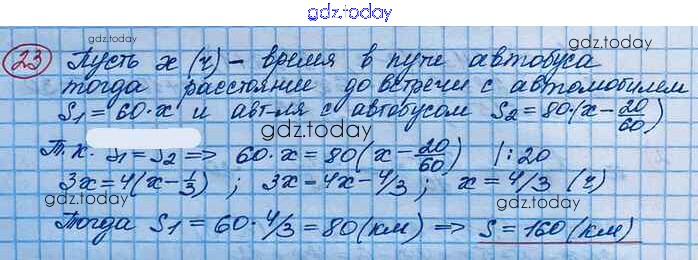 gdz.today
23 Пусть x (ч) - время в пути автобуса
gdz.today
тогда расстояние до встречи с автомобилем
S₁ = 60·x и авт-ля с автобусом S₂ = 80·(x - 20/60)
gdz.today
Т.к. S₁ = S₂ => 60·x = 80(x - 20/60) |:20
3x = 4(x - 1/3) ; 3x = 4x - 4/3 ; x = 4/3 (ч)
gdz.today
gdz.today
Тогда S₁ = 60·4/3 = 80 (км) => S = 160 (км)